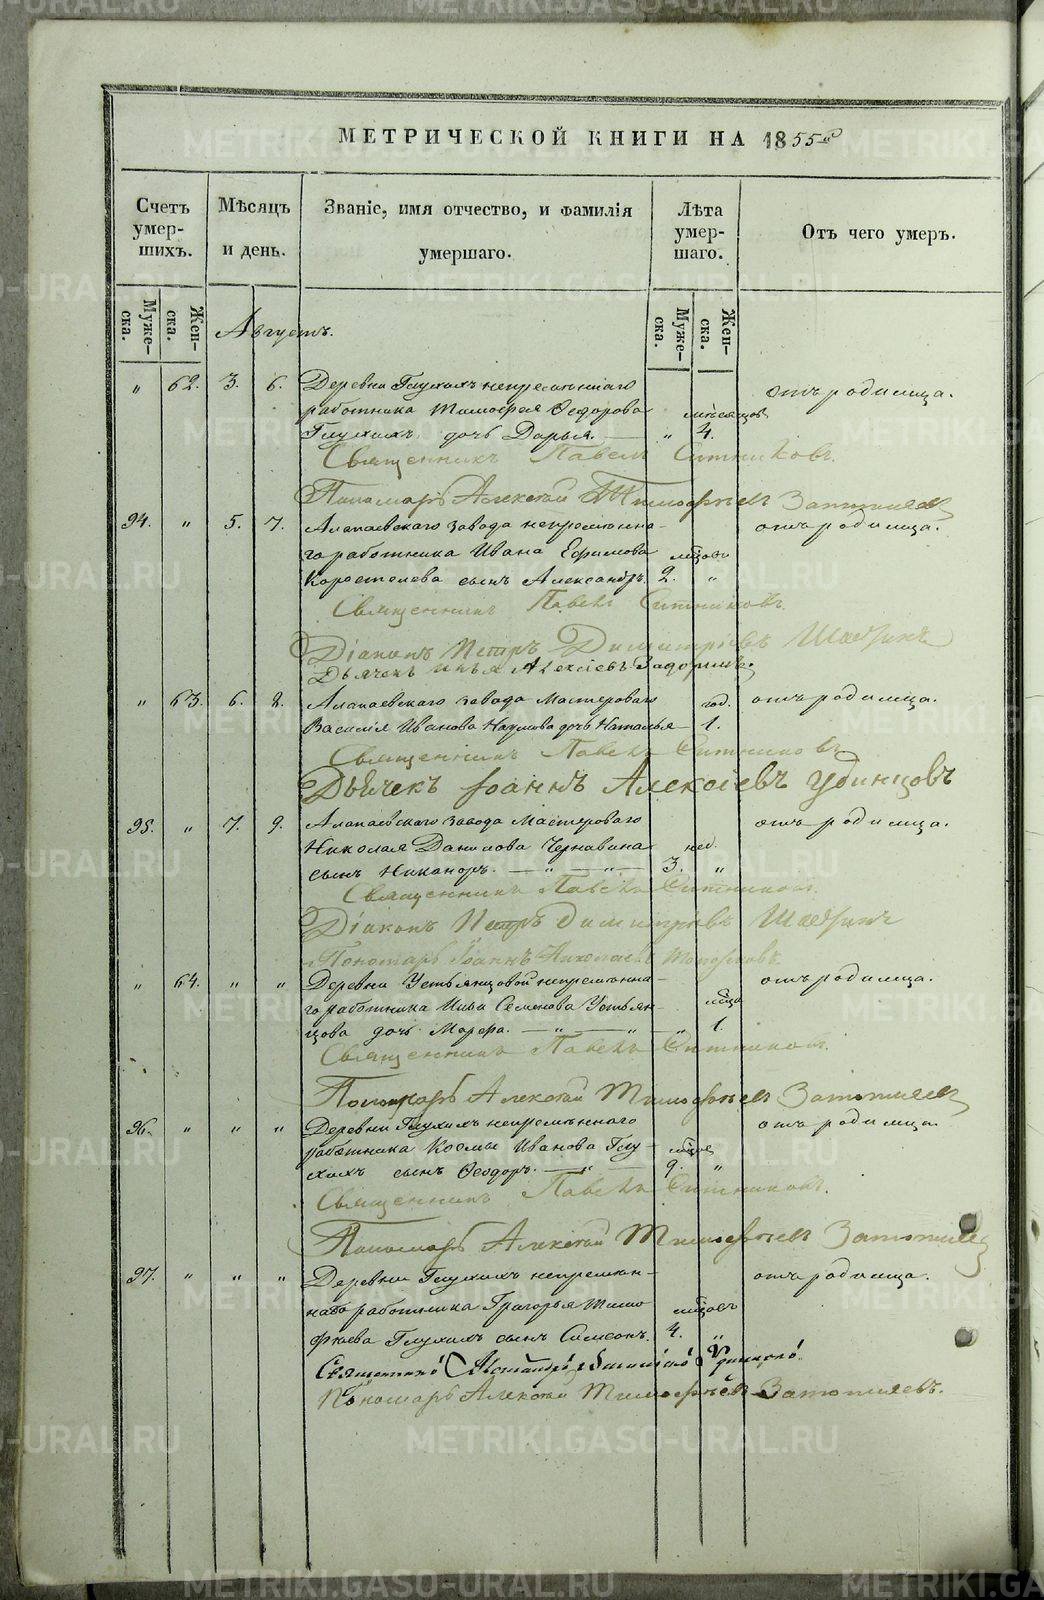 МЕТРИЧЕСКОЙ КНИГИ НА 1855й
Счетъ умер-шихъ.
Мѣсяцъ и день.
Званіе, имя отчество, и фамилія умершаго.
Лѣта умер-шаго.
Отъ чего умеръ.
Муже-ска.
Жен-ска.
Муже-ска.
Жен-ска.
Августъ.
" 62. 3. 6. Деревни Глухихъ непремѣннаго отъ родимца.
работника Тимофея Ѳедорова мѣсяцов
Глухихъ дочь Дарья. — " 4.
Священникъ Павелъ Ситниковъ.
Пономарь Алексѣй Тимофѣевъ Затопляевъ
94. " 5. 7. Алапаевскаго завода непремѣнна- отъ родимца.
го работника Ивана Ефимова мѣсяцовъ
Коростелева сынъ Александръ. 2. "
Священникъ Павелъ Ситниковъ.
Діаконъ Петръ Димитріевъ Шадринъ
Дьячекъ Илья Алексіевъ Задоринъ.
" 63. 6. 8. Алапаевскаго завода Мастероваго год. отъ родимца.
Василія Иванова Наумова дочь Наталья — 1.
Священникъ Павелъ Ситниковъ
Дьячекъ Іоаннъ Алексіевъ Удинцовъ
95. " 7. 9. Алапаевскаго завода Мастероваго отъ родимца.
Николая Данилова Чернавина нед.
сынъ Никаноръ. — " — " — 3. "
Священникъ Павелъ Ситниковъ.
Діаконъ Петръ Димитріевъ Шадринъ
Пономарь Іоаннъ Николаевъ Топорковъ.
" 64. " " Деревни Устьянцовой непремѣнна- отъ родимца.
го работника Ильи Семенова Устьян- мѣсяца
цова дочь Марѳа. — " — " — " 1.
Священникъ Павелъ Ситниковъ.
Пономарь Алексѣй Тимофѣевъ Затопляевъ
96. " " " Деревни Глухихъ непремѣннаго отъ родимца.
работника Космы Иванова Глу- мѣсяцов
хихъ сынъ Ѳеодоръ. — " — 9. "
Священникъ Павелъ Ситниковъ.
Пономарь Алексѣй Тимофѣевъ Затопляевъ
97. " " " Деревни Глухихъ непремѣн- отъ родимца.
наго работника Григорья Тимо- мѣсяцовъ
фѣева Глухихъ сынъ Симеонъ. 4. "
Священникъ Удинцовъ.
Пономарь Алексѣй Тимофѣевъ Затопляевъ.
METRIKI.GASO-URAL.RU